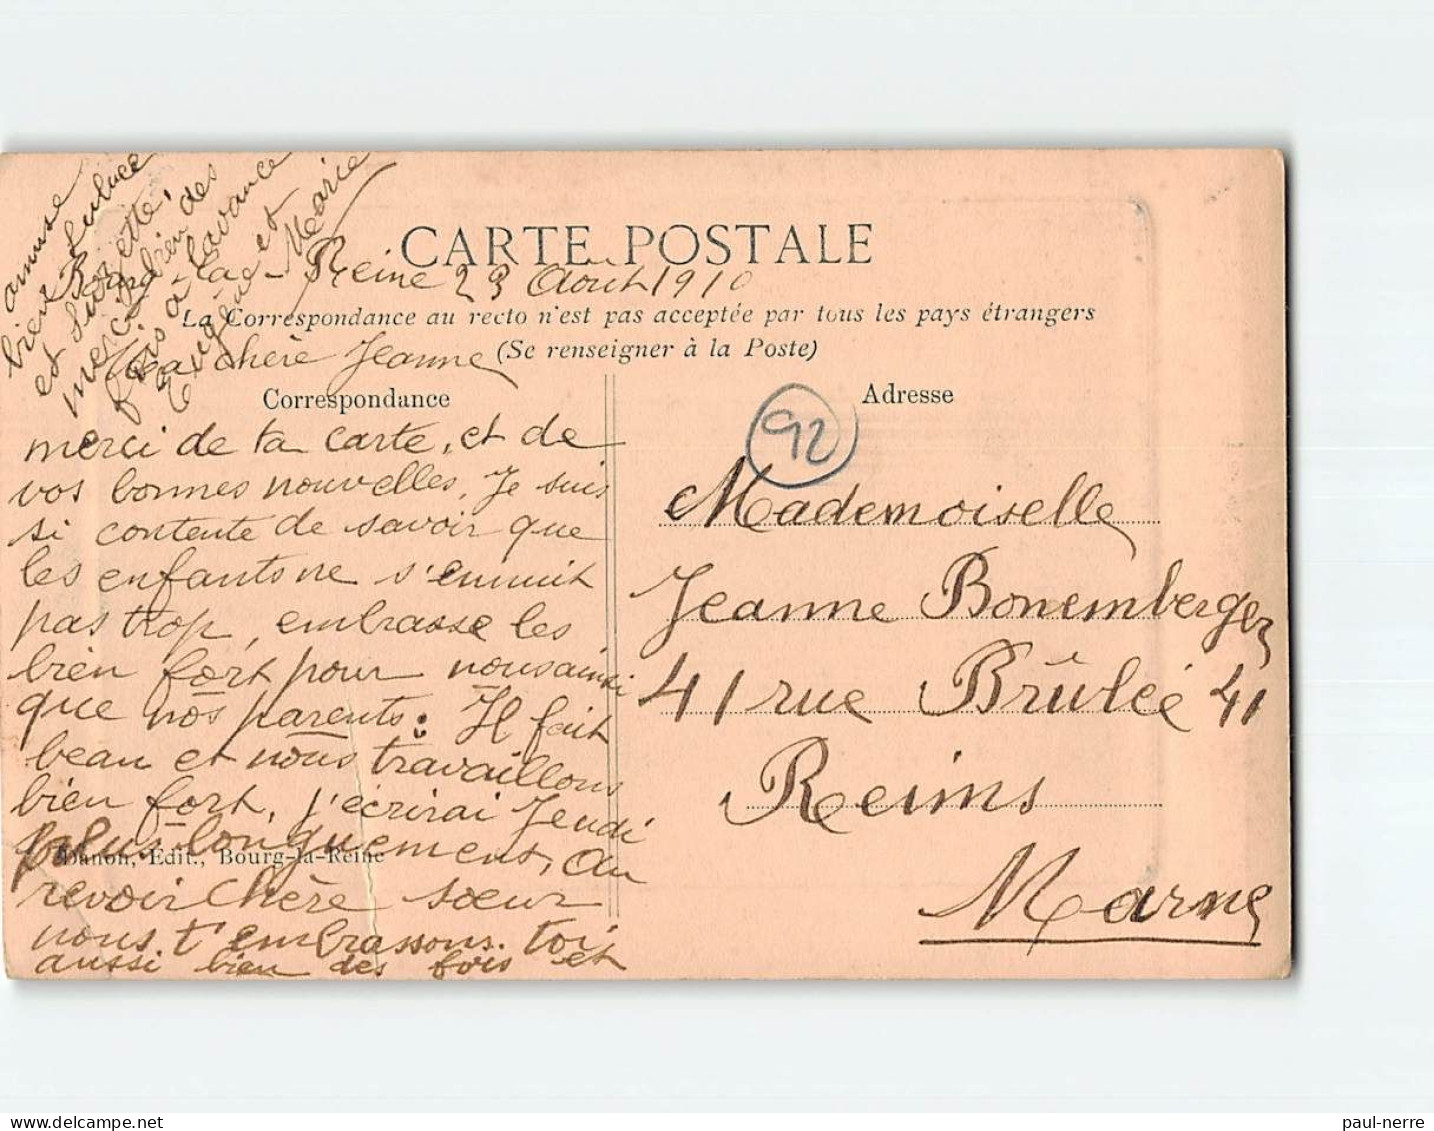 CARTE POSTALE
Bourg-la-Reine 23 Août 1910
La Correspondance au recto n'est pas acceptée par tous les pays étrangers
(Se renseigner à la Poste)
Ma chère Jeanne
Correspondance
merci de ta carte, et de
vos bonnes nouvelles, Je suis
si contente de savoir que
les enfants ne s'ennuit
pas trop, embrasse les
bien fort pour nous ainsi
que nos parents. Il fait
beau et nous travaillons
bien fort, j'écrirai Jeudi
plus longuement, au
revoir Chère sœur
nous t'embrassons toi
aussi bien des fois et
amuse
bien Lulucé
et Suzette,
merci bien des
fois à l'avance
Eugène et
Marie
Danon, Edit., Bourg-la-Reine
Adresse
92
Mademoiselle
Jeanne Bonemberger
41 rue Brûlée 41
Reims
Marne
paul-nerre